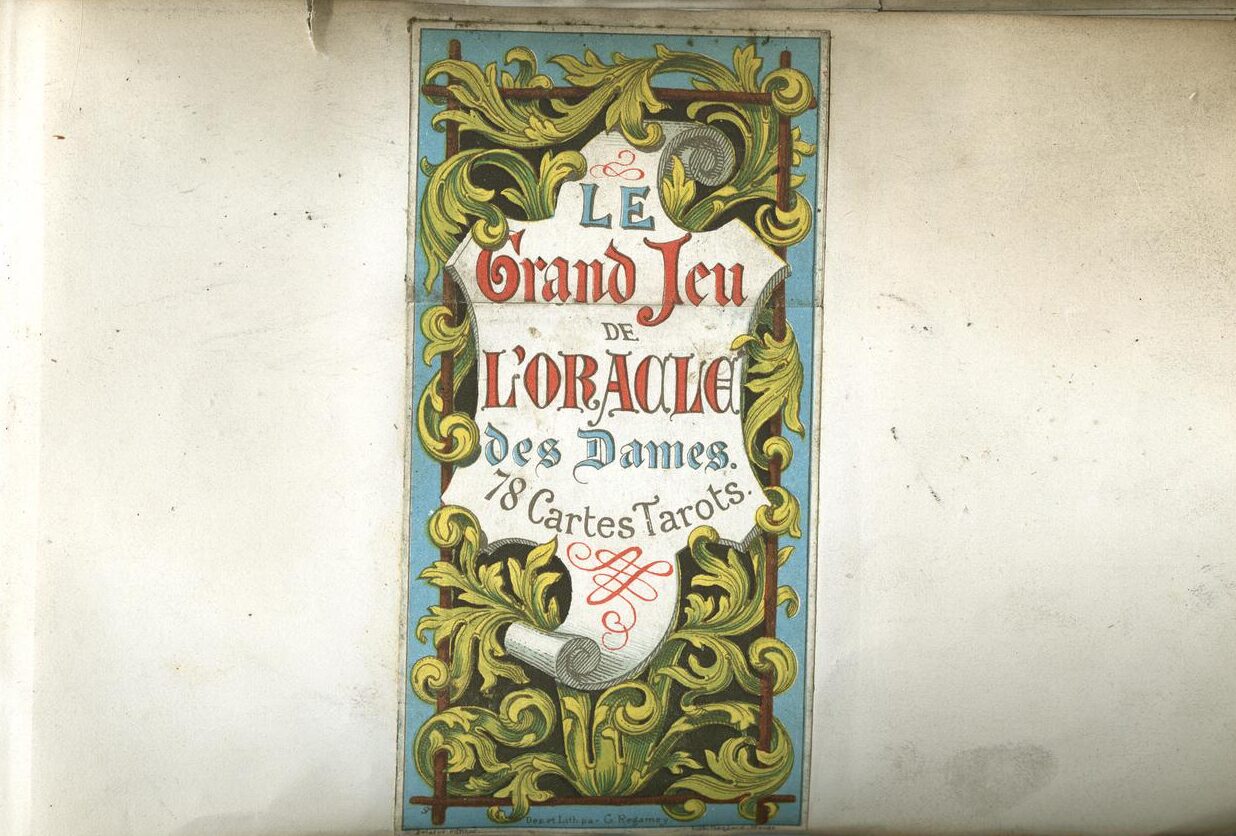 LE
Grand Jeu
DE
L'ORACLE
des Dames.
78 Cartes Tarots.
G. Regamey